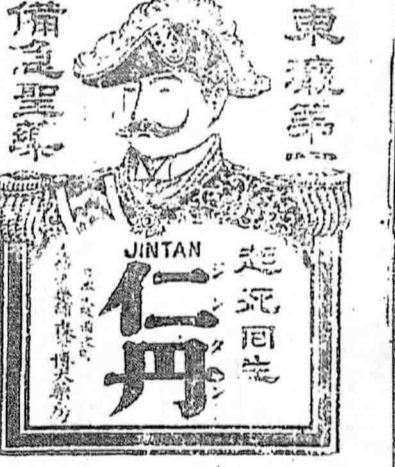 東瀛第一
備急聖藥
JINTAN
起死回生
ジンタン
仁丹